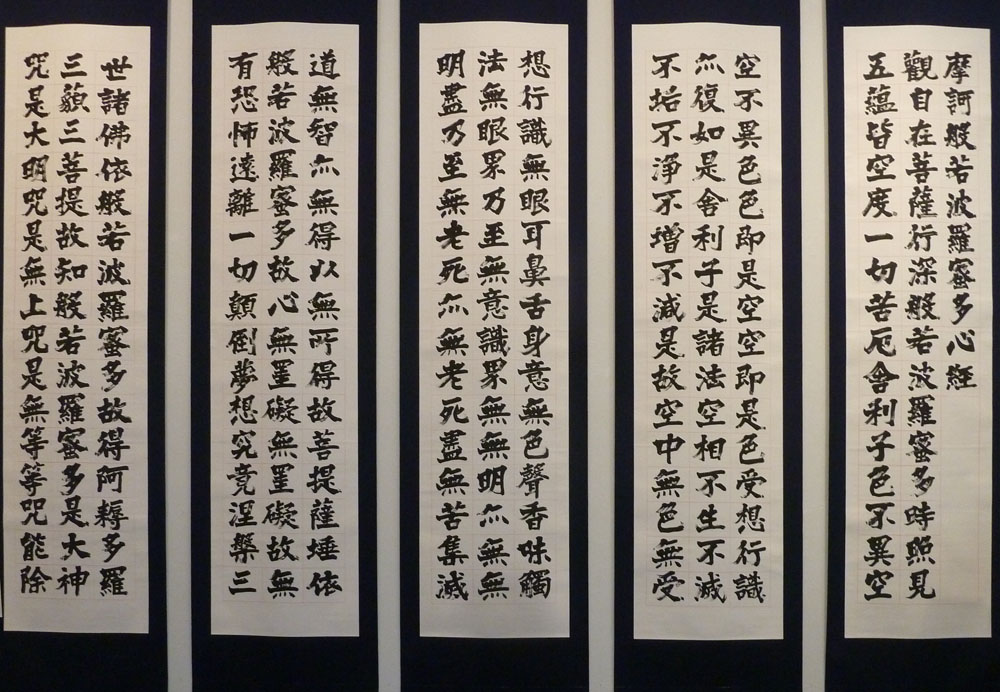 摩訶般若波羅蜜多心経
觀自在菩薩行深般若波羅蜜多時照見
五蘊皆空度一切苦厄舎利子色不異空
空不異色色即是空空即是色受想行識
亦復如是舎利子是諸法空相不生不滅
不垢不浄不增不減是故空中無色無受
想行識無眼耳鼻舌身意無色聲香味觸
法無眼界乃至無意識界無無明亦無無
明盡乃至無老死亦無老死盡無苦集滅
道無智亦無得以無所得故菩提薩埵依
般若波羅蜜多故心無罣礙無罣礙故無
有恐怖遠離一切顛倒夢想究竟涅槃三
世諸佛依般若波羅蜜多故得阿耨多羅
三藐三菩提故知般若波羅蜜多是大神
咒是大明咒是無上咒是無等等咒能除